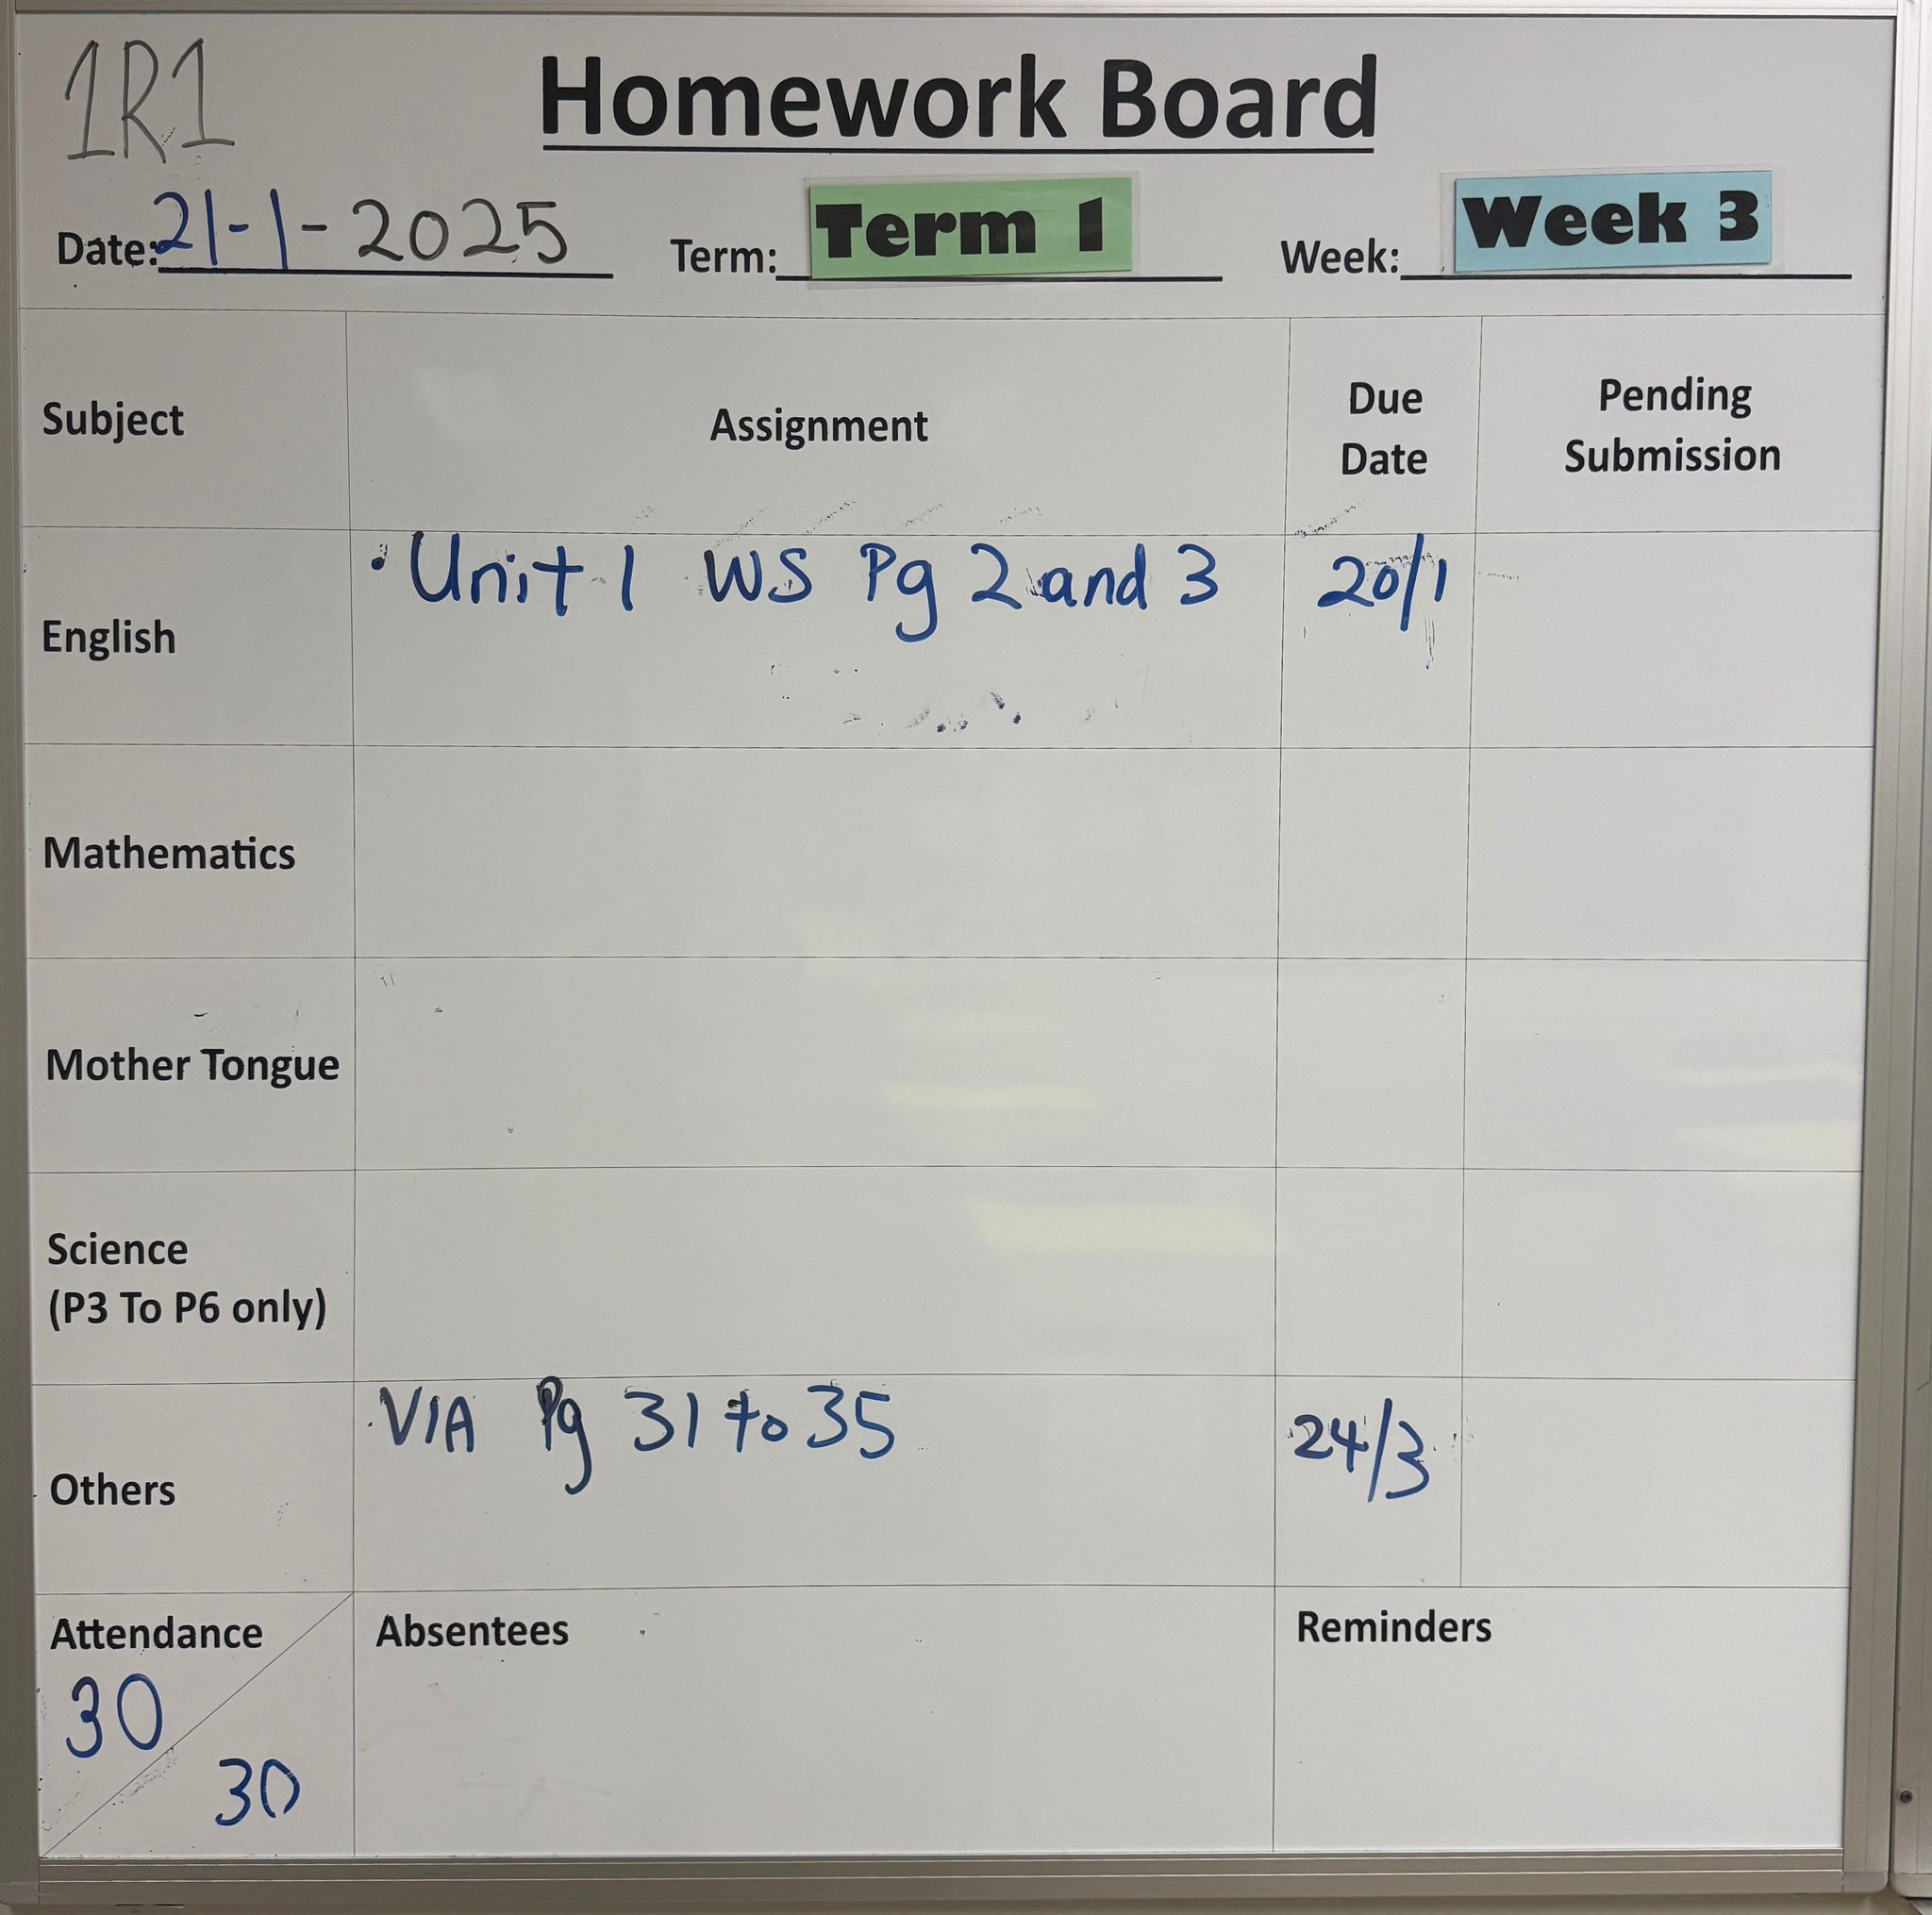 1R1
Homework Board
Date: 21-1-2025 Term: Term 1 Week: Week 3
Subject Assignment Due Date Pending Submission
English · Unit 1 WS Pg 2 and 3 20/1
Mathematics
Mother Tongue
Science
(P3 To P6 only)
Others · VIA Pg 31 to 35 24/3
Attendance Absentees Reminders
30
30